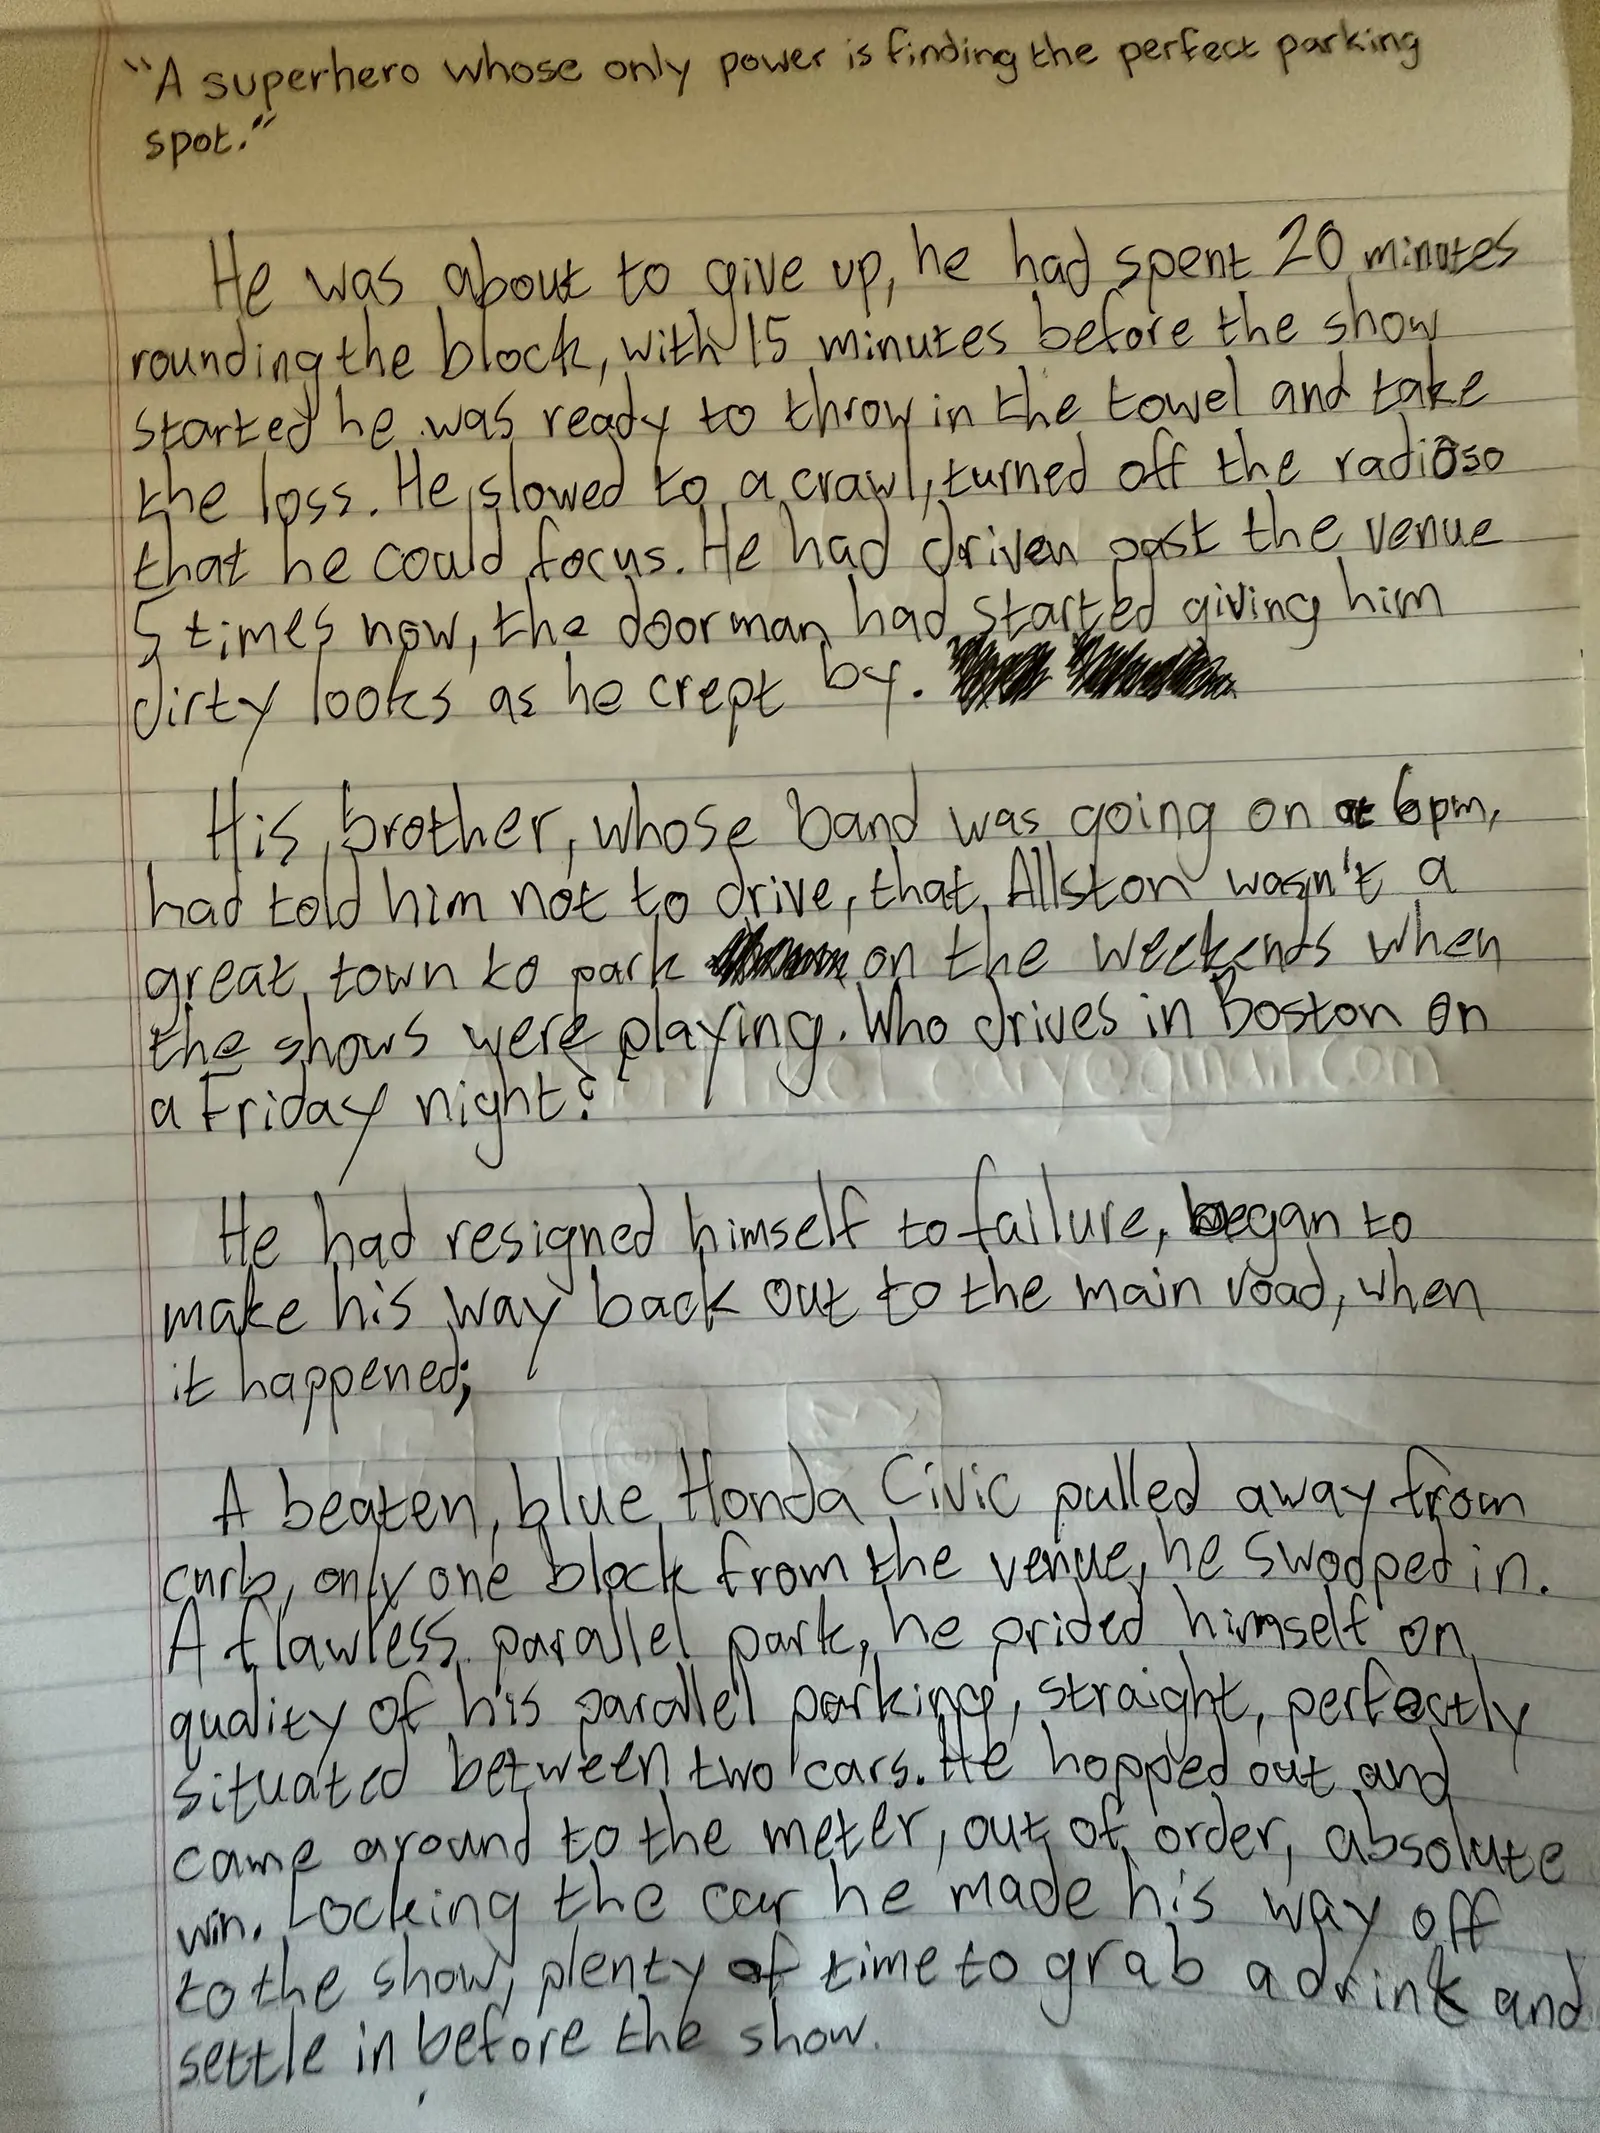 "A superhero whose only power is finding the perfect parking
spot."
He was about to give up, he had spent 20 minutes
rounding the block, with 15 minutes before the show
started he was ready to throw in the towel and take
the loss. He slowed to a crawl, turned off the radio so
that he could focus. He had driven past the venue
5 times now, the doorman had started giving him
dirty looks as he crept by.
His brother, whose band was going on at 6pm,
had told him not to drive, that Allston wasn't a
great town to park on the weekends when
the shows were playing. Who drives in Boston on
a Friday night?
He had resigned himself to failure, began to
make his way back out to the main road, when
it happened;
A beaten, blue Honda Civic pulled away from
curb, only one block from the venue, he swooped in.
A flawless parallel park, he prided himself on
quality of his parallel parking, straight, perfectly
situated between two cars. He hopped out and
came around to the meter, out of order, absolute
win. Locking the car he made his way off
to the show, plenty of time to grab a drink and
settle in before the show.